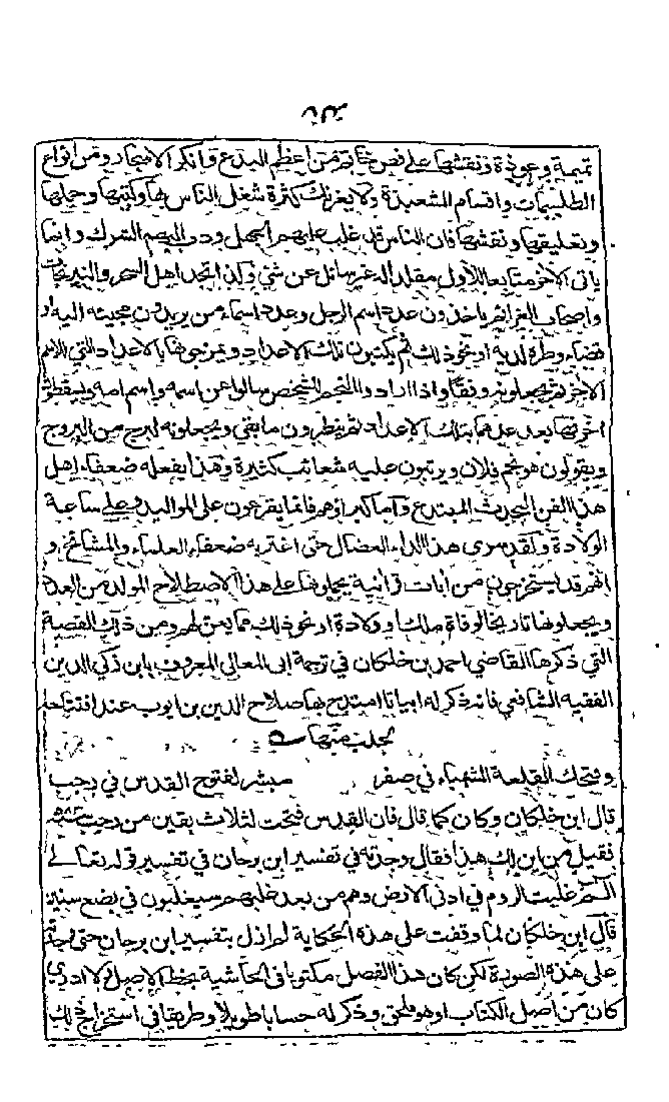 تميمة وعوذة ونقشها على فص خاتم من أعظم البدع وانكر الاسحار ومن انواع
الطلسمات واقسام الشعبذة ولا يغرنك كثرة شغل الناس بها وكتبها وحملها
وتعليقها ونقشها فان الناس قد غلب عليهم الجهل ودب اليهم الشرك وانما
ياتى الآخر متابعا للاول مقلدا له غير سائل عن شئ وكذا تجد اهل السحر والنيرنجات
واصحاب العزائم ياخذون عدد اسم الرجل وعدد اسماء من يريدون محبته اليه او
قضاء وطره لديه او نحو ذلك ثم يكتبون تلك الاعداد ويمزجونها بالاعداد التي للاسم
الآخر ثم يجعلونه وفقا واذا ارادوا النجم لشخص سالوا عن اسمه واسم امه ويسقطون
احرفها بعد عدهما بتلك الاعداد ثم ينظرون ما بقي ويجعلونه لبرج من البروج
ويقولون هو نجم فلان ويرتبون عليه شعائب كثيرة وهذا يفعله ضعفاء اهل
هذا الفن المحدث المبتدع واما كبراؤهم فانما يفرعون على المواليد وعلى ساعة
الولادة ولقد سرى هذا الداء العضال حتى اغتر به ضعفاء العلماء والمشائخ و
انهم قد يستخرجون من آيات قرآنية يحملونها على هذا الاصطلاح المولد من العدد
ويجعلونها تاريخا لوفاة ملك او ولادة او نحو ذلك مما يعن لهم ومن ذلك القصة
التي ذكرها القاضي احمد بن خلكان في ترجمة ابى المعالي المعروف بابن زكي الدين
الفقيه الشافعي فانه ذكر له ابياتا امتدح بها صلاح الدين بن ايوب عند افتتاحه
لحلب منها
وفتحك القلعة الشهباء في صفر مبشر لفتوح القدس في رجب
قال ابن خلكان وكان كما قال فان القدس فتحت لثلاث بقين من رجب
فقيل من اين لك هذا فقال وجدته في تفسير ابن برجان في تفسير قوله تعالى
الم غلبت الروم في ادنى الارض وهم من بعد غلبهم سيغلبون في بضع سنين
قال ابن خلكان لما وقفت على هذه الحكاية لم ازل بتفسير ابن برجان حتى وجدته
على هذه الصورة لكن كان هذا الفصل مكتوبا في الحاشية بخط الاصل ولا ادري
كان من اصل الكتاب او هو ملحق وذكر له حسابا طويلا وطريقا في استخراج ذلك